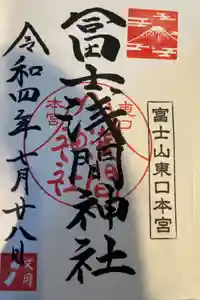 富士山東口本宮
冨士浅間神社
東口
本宮
令和四年七月廿八日
文月